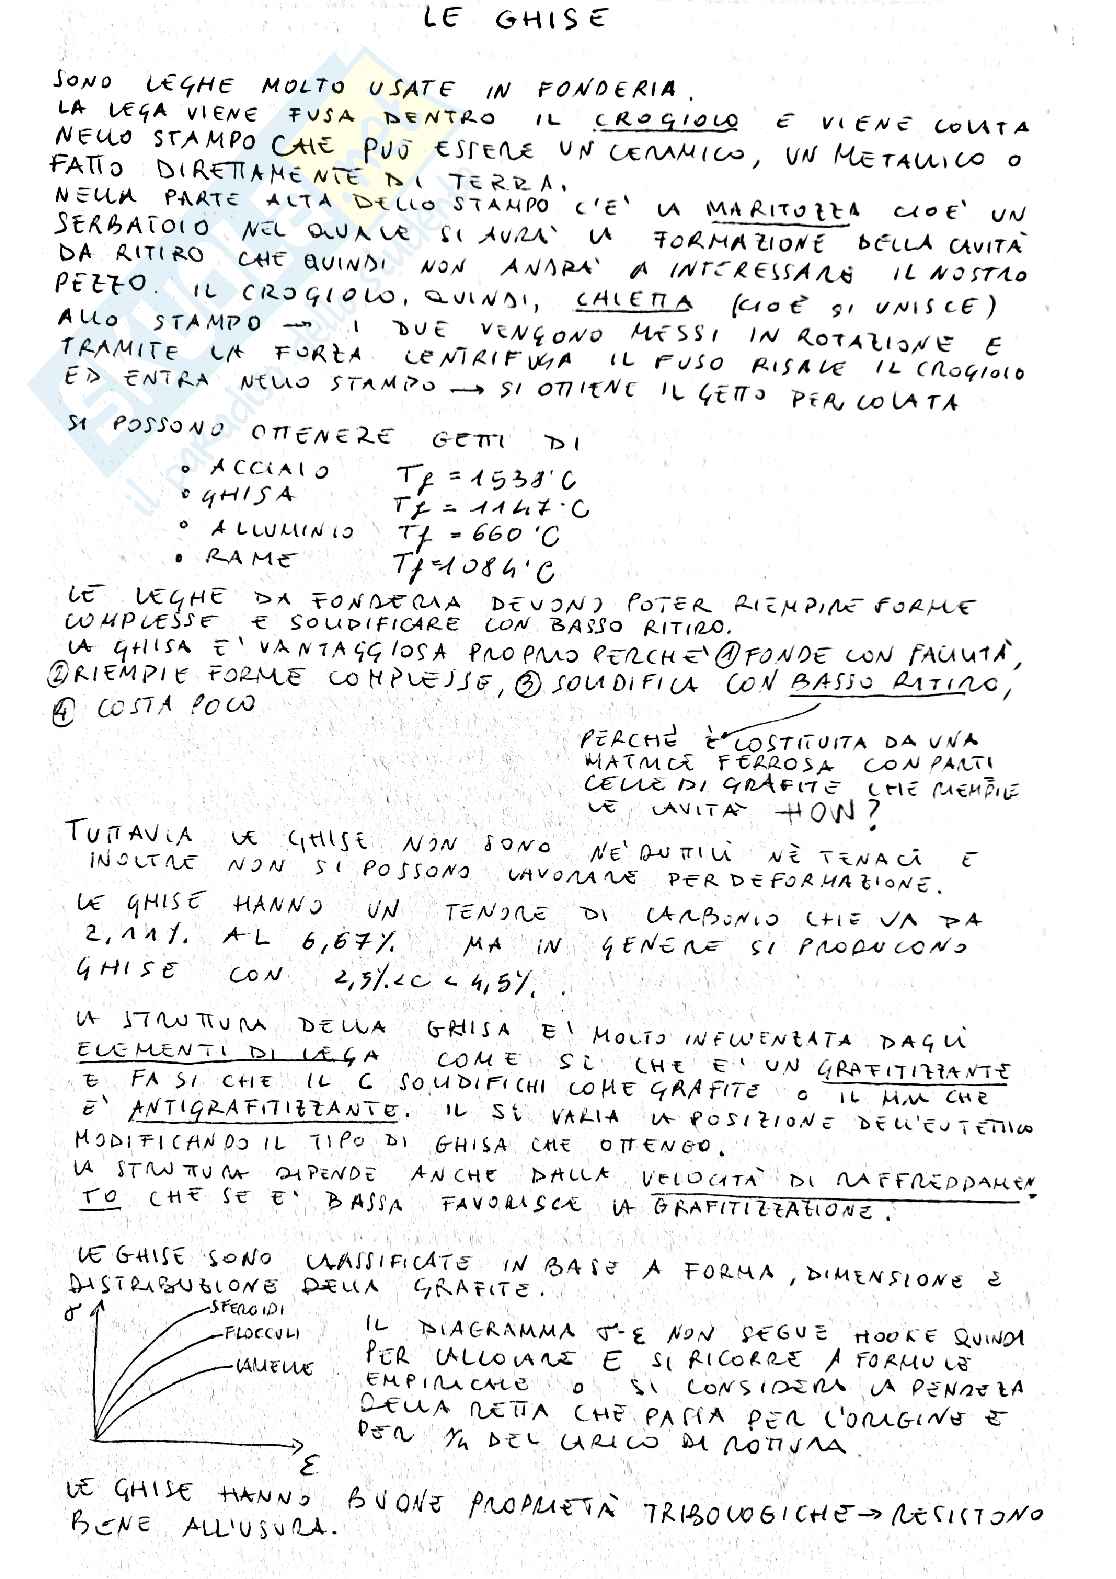 LE GHISE
SONO LEGHE MOLTO USATE IN FONDERIA.
LA LEGA VIENE FUSA DENTRO IL CROGIOLO E VIENE COLATA
NELLO STAMPO CHE PUÒ ESSERE UN CERAMICO, UN METALLICO O
FATTO DIRETTAMENTE DI TERRA.
NELLA PARTE ALTA DELLO STAMPO C'E' LA MAROTOZZA CIOE' UN
SERBATOIO NEL QUALE SI AVRA' LA FORMAZIONE DELLA CAVITÀ
DA RITIRO CHE QUINDI NON ANDRA' A INTERESSARE IL NOSTRO
PEZZO. IL CROGIOLO, QUINDI, CHIETTA (CIOÈ SI UNISCE)
ALLO STAMPO → I DUE VENGONO MESSI IN ROTAZIONE E
TRAMITE LA FORZA CENTRIFUGA IL FUSO RISALE IL CROGIOLO
ED ENTRA NELLO STAMPO → SI OTTIENE IL GETTO PER COLATA
SI POSSONO OTTENERE GETTI DI
• ACCIAIO Tf = 1538°C
• GHISA Tf = 1147°C
• ALLUMINIO Tf = 660°C
• RAME Tf=1084°C
LE LEGHE DA FONDERIA DEVONO POTER RIEMPIRE FORME
COMPLESSE E SOLIDIFICARE CON BASSO RITIRO.
LA GHISA E' VANTAGGIOSA PROPRIO PERCHE' ① FONDE CON FACILITÀ,
② RIEMPIE FORME COMPLESSE, ③ SOLIDIFICA CON BASSO RITIRO,
④ COSTA POCO
PERCHÉ È COSTITUITA DA UNA
MATRICE FERROSA CON PARTI
CELLE DI GRAFITE CHE RIEMPIE
LE CAVITÀ HOW?
TUTTAVIA LE GHISE NON SONO NE' DUTTILI NÈ TENACI E
INOLTRE NON SI POSSONO LAVORARE PER DEFORMAZIONE.
LE GHISE HANNO UN TENORE DI CARBONIO CHE VA DA
2,11% AL 6,67% MA IN GENERE SI PRODUCONO
GHISE CON 2,5%<C<4,5%.
LA STRUTTURA DELLA GHISA E' MOLTO INFLUENZATA DAGLI
ELEMENTI DI LEGA COME SI CHE E' UN GRAFITIZZANTE
E FA SI CHE IL C SOLIDIFICHI COME GRAFITE O IL Mn CHE
E' ANTIGRAFITIZZANTE. IL SI VARIA LA POSIZIONE DELL'EUTETTICO
MODIFICANDO IL TIPO DI GHISA CHE OTTENGO.
LA STRUTTURA DIPENDE ANCHE DALLA VELOCITÀ DI RAFFREDDAMEN
TO CHE SE E' BASSA FAVORISCE LA GRAFITIZZAZIONE.
LE GHISE SONO CLASSIFICATE IN BASE A FORMA, DIMENSIONE E
DISTRIBUZIONE DELLA GRAFITE.
σ
SFEROIDI
FLOCCULI
LAMELLE
ε
IL DIAGRAMMA σ-ε NON SEGUE HOOKE QUINDI
PER CALCOLARE E SI RICORRE A FORMULE
EMPIRICHE O SI CONSIDERA LA PENDENZA
DELLA RETTA CHE PASSA PER L'ORIGINE E
PER 1/4 DEL CARICO DI ROTTURA.
LE GHISE HANNO BUONE PROPRIETÀ TRIBOLOGICHE → RESISTONO
BENE ALL'USURA.